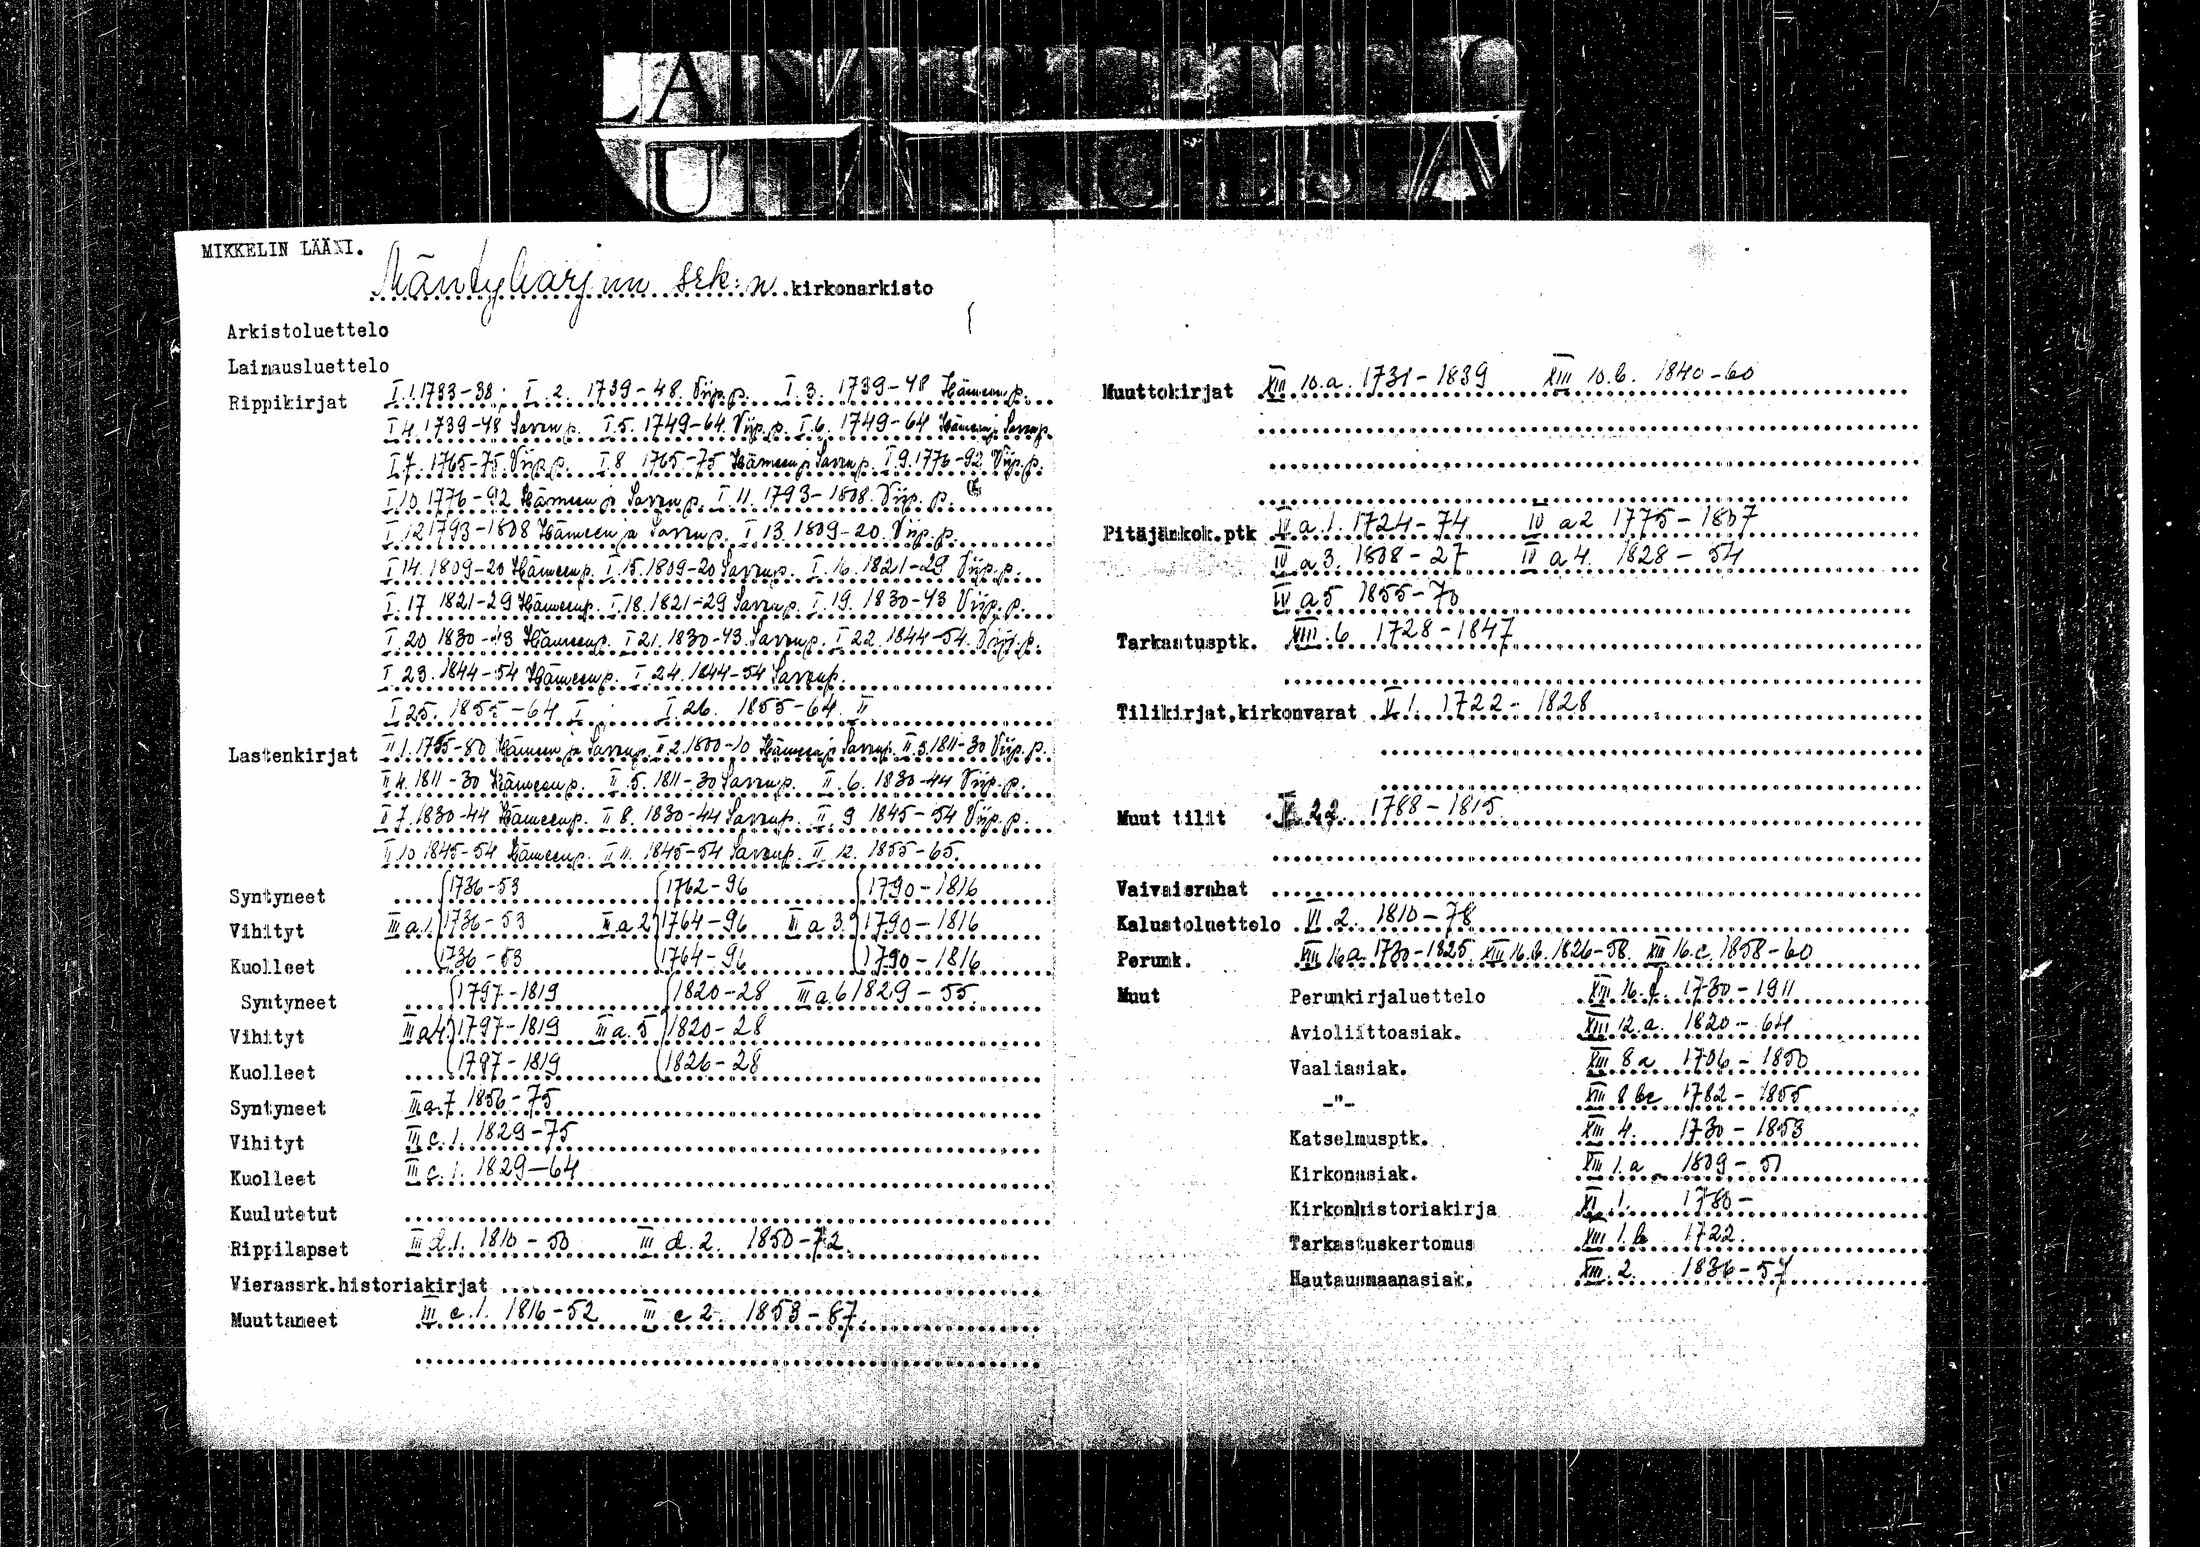 MIKKELIN LÄÄNI.
Mäntyharjun srk:n kirkonarkisto
Arkistoluettelo
Lainausluettelo
Rippikirjat I.1.1733-38; I.2. 1739-48. Viip.p. I.3. 1739-48 Hämeenp.
I 4. 1739-48 Savonp. I.5. 1749-64. Viip.p. I.6. 1749-64 Hämeen ja Savonp.
I 7. 1765-75. Viip.p. I.8 1765-75 Hämeen ja Savonp. I.9. 1776-92. Viip.p.
I 10 1776-92 Hämeen ja Savonp. I 11. 1793-1808. Viip. p.
I 12 1793-1808 Hämeen ja Savonp. I 13. 1809-20. Viip.p.
I 14. 1809-20 Hämeenp. I.15. 1809-20 Savonp. I.16. 1821-29 Viip.p.
I.17 1821-29 Hämeenp. I.18. 1821-29 Savonp. I.19. 1830-43 Viip.p.
I.20 1830-43 Hämeenp. I 21. 1830-43. Savonp. I 22. 1844-54. Viip.p.
I 23. 1844-54 Hämeenp. I 24. 1844-54 Savonp.
I 25. 1855-64 I I.26. 1855-64. II
Lastenkirjat II 1. 1755-80 Hämeen ja Savonp. II 2. 1800-10 Hämeen ja Savonp. II.3. 1811-30 Viip.p.
II 4. 1811-30 Hämeenp. II.5. 1811-30 Savonp. II.6. 1830-44 Viip.p.
II 7. 1830-44 Hämeenp. II 8. 1830-44 Savonp. II.9 1845-54 Viip.p.
II.10 1845-54 Hämeenp. II 11. 1845-54 Savonp. II.12. 1855-65.
Syntyneet 1736-53 1762-96 1790-1816
Vihityt III a.1. 1736-53 III a 2 1764-96 III a 3. 1790-1816
Kuolleet 1736-53 1764-96 1790-1816
Syntyneet 1797-1819 1820-28 III a.6 1829-55.
Vihityt III a 4. 1797-1819 III a.5 1820-28
Kuolleet 1797-1819 1826-28
Syntyneet III a.7 1856-75
Vihityt III c.1. 1829-75
Kuolleet III c.1. 1829-64
Kuulutetut
Rippilapset III d.1. 1810-50 III d.2. 1850-72.
Vierassrk.historiakirjat
Muuttaneet III e.1. 1816-52 III e 2. 1853-87.
Muuttokirjat XIII 10.a. 1731-1839 XIII 10.b. 1840-60
Pitäjänkok.ptk IV a.1. 1724-74 IV a 2 1775-1807
IV a 3. 1808-27 IV a 4. 1828-54
IV a 5 1855-70
Tarkastusptk. XIII.6 1728-1847
Tilikirjat,kirkonvarat V.1. 1722-1828
Muut tilit 1788-1815.
Vaivaisrahat
Kalustoluettelo VI 2. 1810-78
Perunk. XIII 16 a. 1730-1825. XIII 16.b. 1826-58. XIII 16.c. 1858-60
Muut Perunkirjaluettelo XIII 16. 1730-1911
Avioliittoasiak. XIII 12.a. 1820-64
Vaaliasiak. XIII 8 a 1706-1850
-"- XIII 8 bc 1782-1855
Katselmusptk. XIII 4. 1730-1853
Kirkonasiak. XIII 1.a 1809-51
Kirkonhistoriakirja XI.1. 1780-
Tarkastuskertomus XIII 1.b 1722.
Hautausmaanasiak. XIII.2. 1836-57